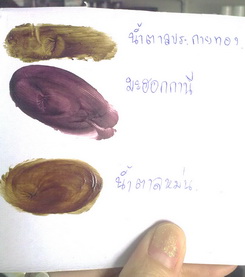 น้ำตาลประกายทอง
มะฮอกกานี
น้ำตาลหม่น